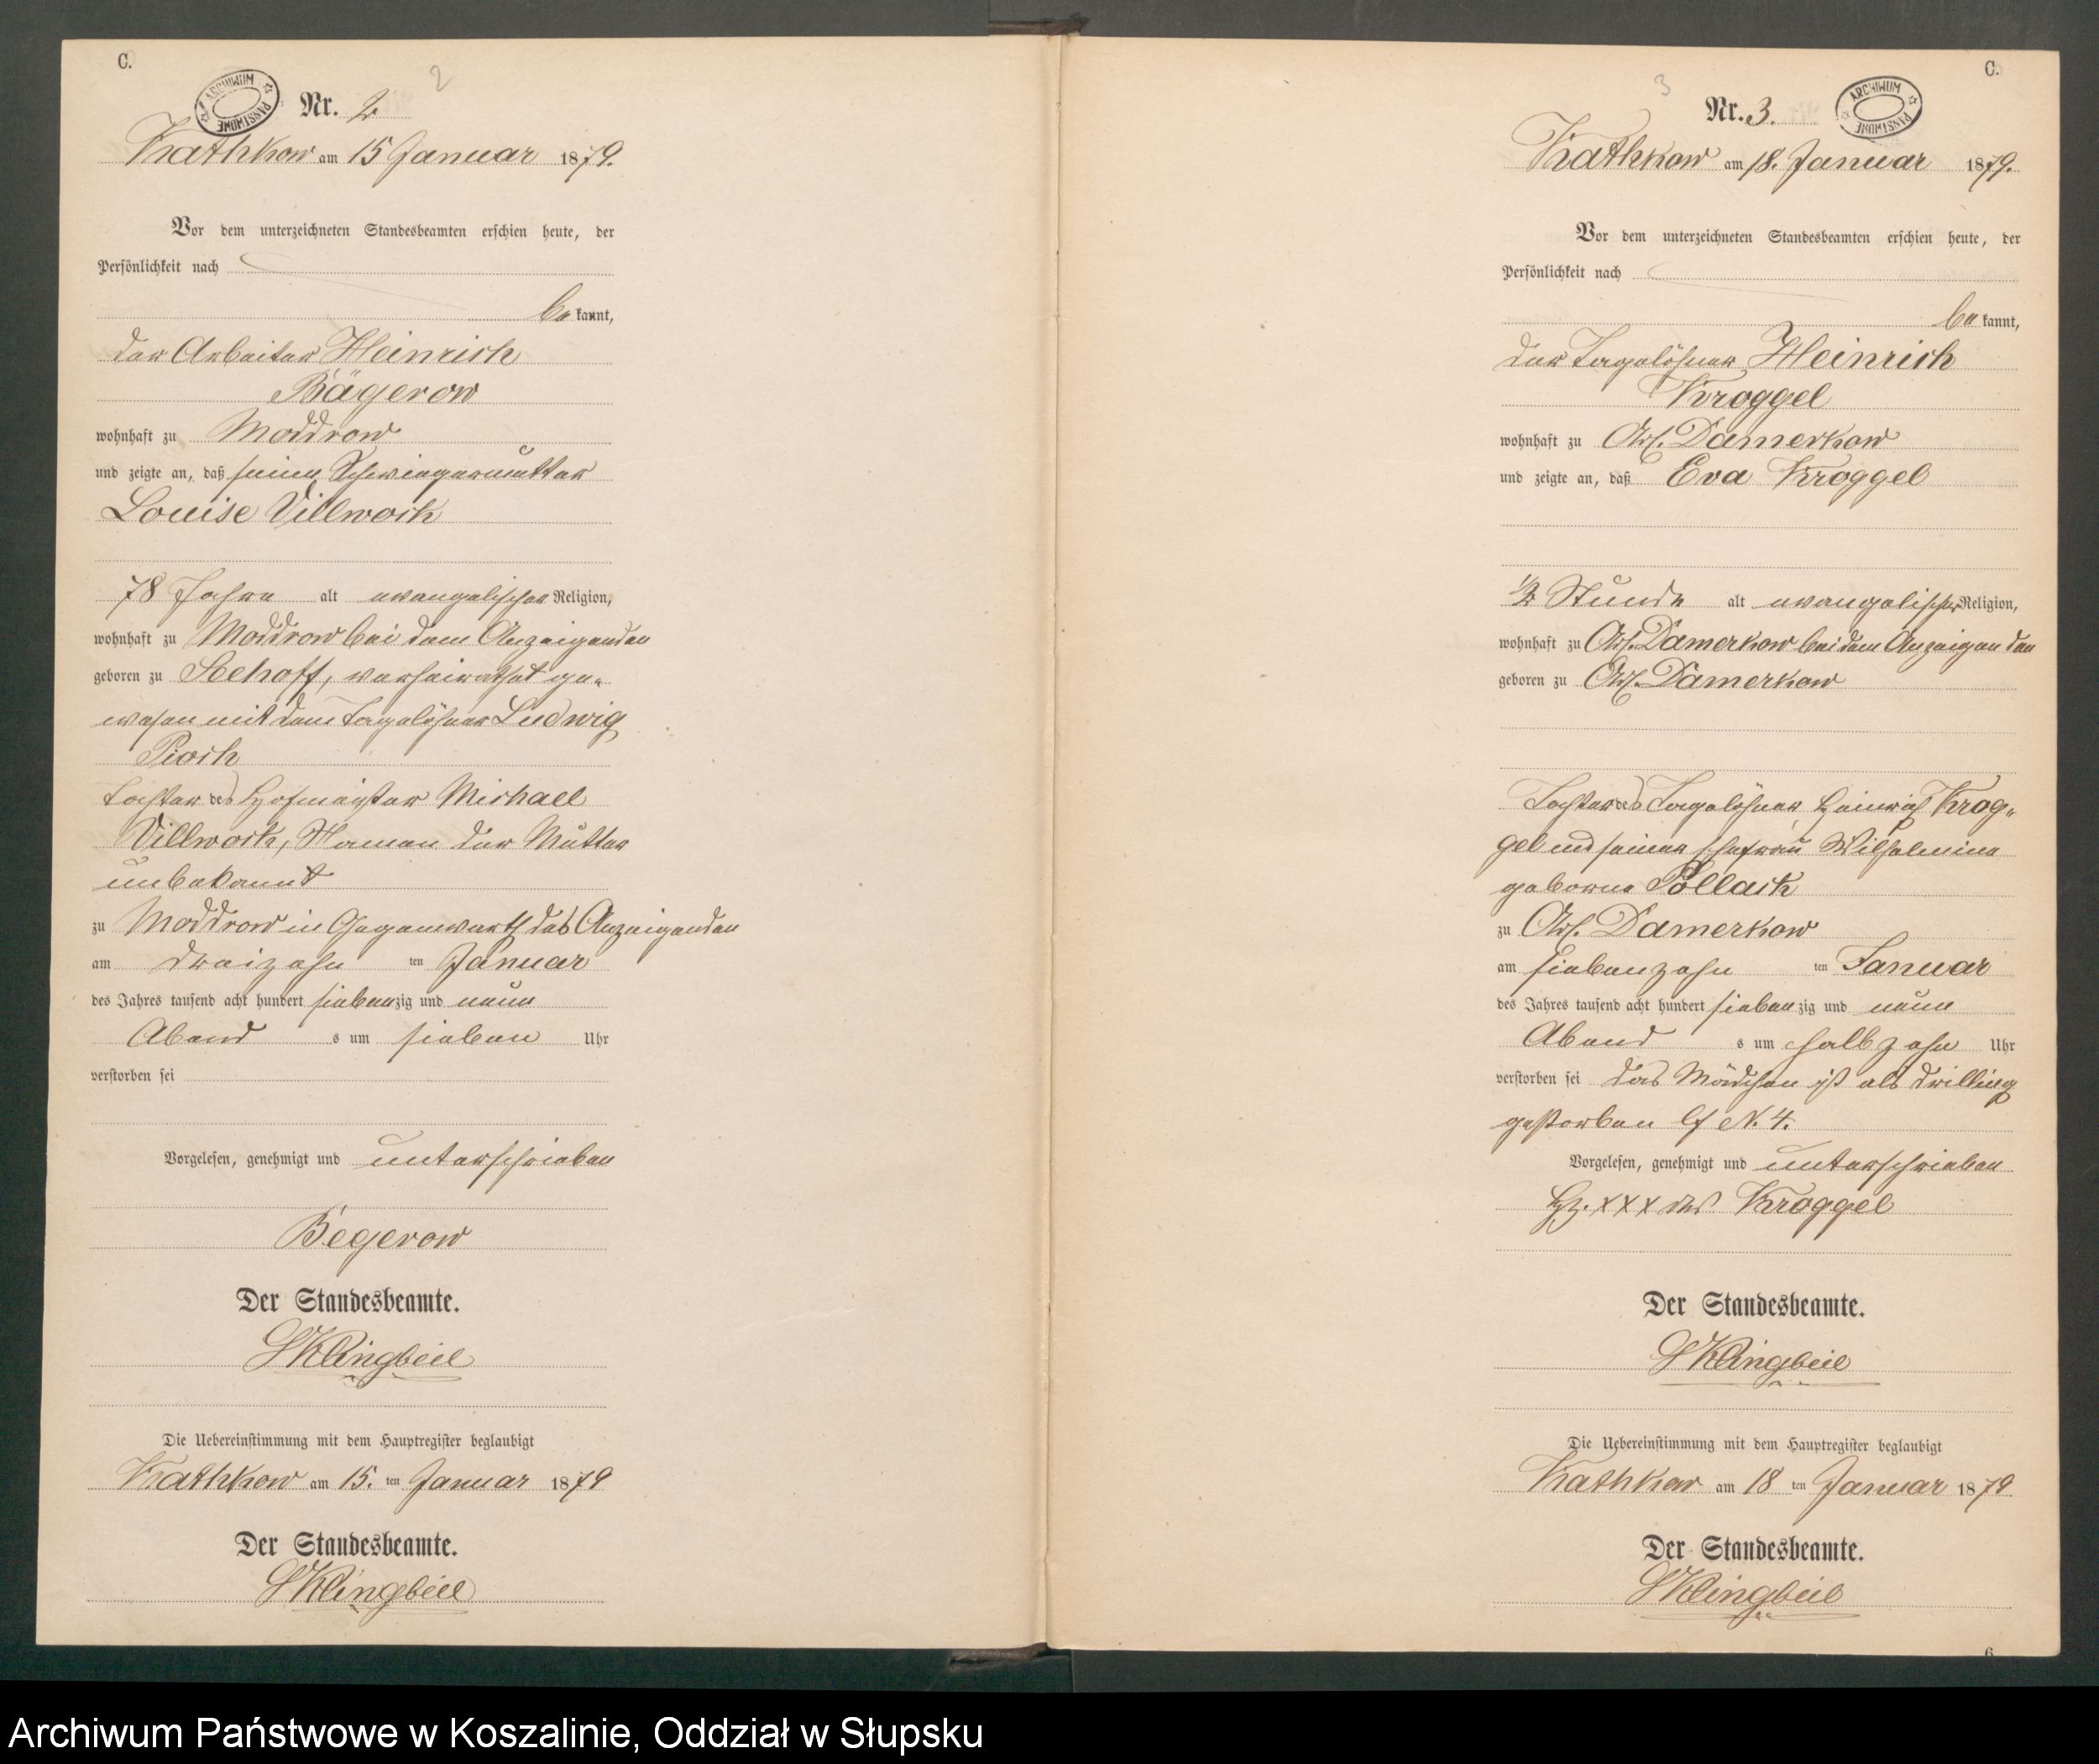 C.
ARCHIWUM PAŃSTWOWE
Nr. 2
2
Krathkow am 15 Januar 1879.
Vor dem unterzeichneten Standesbeamten erschien heute, der
Persönlichkeit nach
bekannt,
der Arbeiter Heinrich
Bägerow
wohnhaft zu Moddrow
und zeigte an, daß seine Schwiegermutter
Louise Villwock
78 Jahre alt evangelischer Religion,
wohnhaft zu Moddrow bei dem Anzeigenden
geboren zu Seehoff, verheirathet ge-
wesen mit dem Tagelöhner Ludwig
Pioch
Tochter des Hofmeister Michael
Villwock, Namen der Mutter
unbekannt
zu Moddrow in Gegenwarth des Anzeigenden
am dreizehn ten Januar
des Jahres tausend acht hundert siebenzig und neun
Abend s um sieben Uhr
verstorben sei
Vorgelesen, genehmigt und unterschrieben
Begerow
Der Standesbeamte.
Klingbeil
Die Uebereinstimmung mit dem Hauptregister beglaubigt
Krathkow am 15. ten Januar 1879
Der Standesbeamte.
Klingbeil
C.
3
Nr. 3.
ARCHIWUM PAŃSTWOWE
Krathkow am 18. Januar 1879.
Vor dem unterzeichneten Standesbeamten erschien heute, der
Persönlichkeit nach
bekannt,
der Tagelöhner Heinrich
Kroggel
wohnhaft zu Damerkow
und zeigte an, daß Eva Kroggel
1/2 Stunde alt evangelischer Religion,
wohnhaft zu Damerkow bei dem Anzeigenden
geboren zu Damerkow
Tochter des Tagelöhner Heinrich Krog-
gel und seiner Ehefrau Wilhelmine
geborne Pollack
zu Damerkow
am siebenzehn ten Januar
des Jahres tausend acht hundert siebenzig und neun
Abend s um halb zehn Uhr
verstorben sei das Mädchen ist als Drilling
gestorben cf N. 4.
Vorgelesen, genehmigt und unterschrieben
Hz. xxx des Kroggel
Der Standesbeamte.
Klingbeil
Die Uebereinstimmung mit dem Hauptregister beglaubigt
Krathkow am 18 ten Januar 1879
Der Standesbeamte.
Klingbeil
6
Archiwum Państwowe w Koszalinie, Oddział w Słupsku